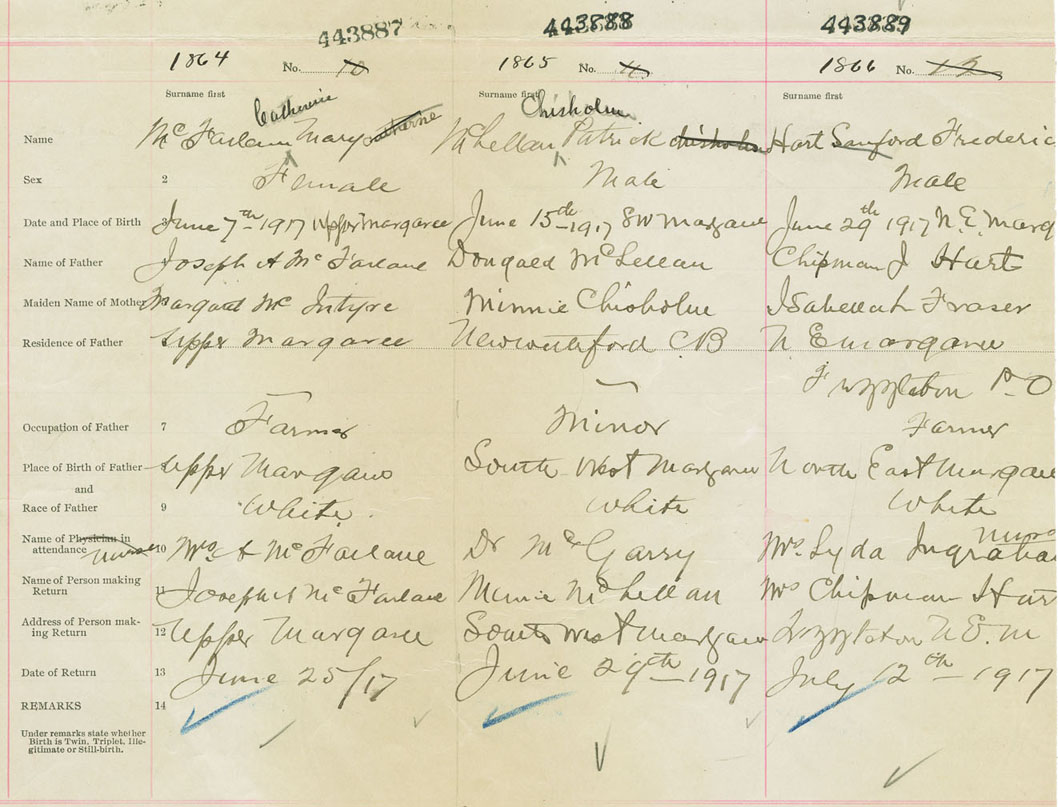 443887 443888 443889
1864 No. 10 1865 No. 11 1866 No. 12
Surname first Surname first Surname first
Catherine Chisholm
Name McFarlane Mary Catherine McLellan Patrick Chisholm Hart Sanford Frederic
Sex 2 Female Male Male
Date and Place of Birth 3 June 7th 1917 Upper Margaree June 15th 1917 SW Margaree June 29th 1917 N. E. Marg
Name of Father Joseph A McFarlane Dougald McLellan Chipman J Hart
Maiden Name of Mother Margaret McIntyre Minnie Chisholm Isabellah Fraser
Residence of Father Upper Margaree CB N E Margaree
P O
Occupation of Father 7 Farmer Minor Farmer
Place of Birth of Father Upper Margaree South West Margaree North East Margaree
and
Race of Father 9 White White White
Name of Physician in nurse
attendance nurse 10 Mrs A McFarlane Dr McGarry Mrs Lyda Ingraham
Name of Person making
Return 11 Joseph A McFarlane Minnie McLellan Mrs Chipman Hart
Address of Person mak-
ing Return 12 Upper Margaree South west Margaree N. E. M
Date of Return 13 June 25/17 June 29th 1917 July 12th 1917
REMARKS 14
Under remarks state whether
Birth is Twin, Triplet, Ille-
gitimate or Still-birth.